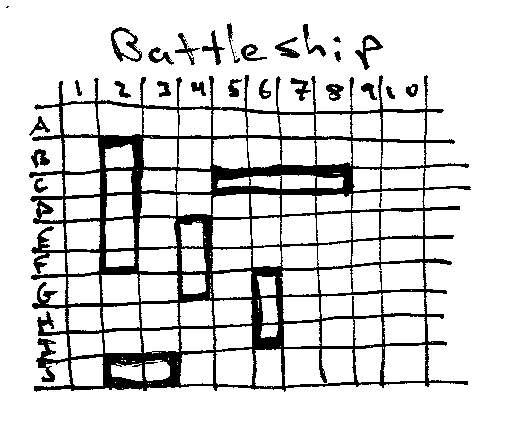 Battleship
1 2 3 4 5 6 7 8 9 10
A
B
C
D
E
F
G
H
I
J